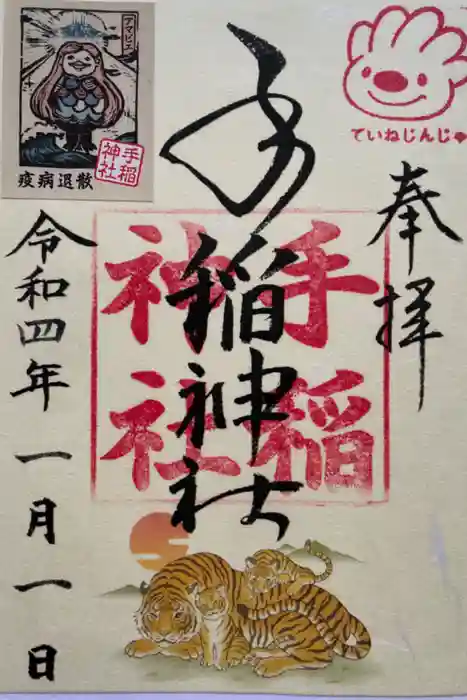 奉拝
手稲神社
手稲
神社
令和四年一月一日
アマビエ
手稲
神社
疫病退散
ていねじんじゃ